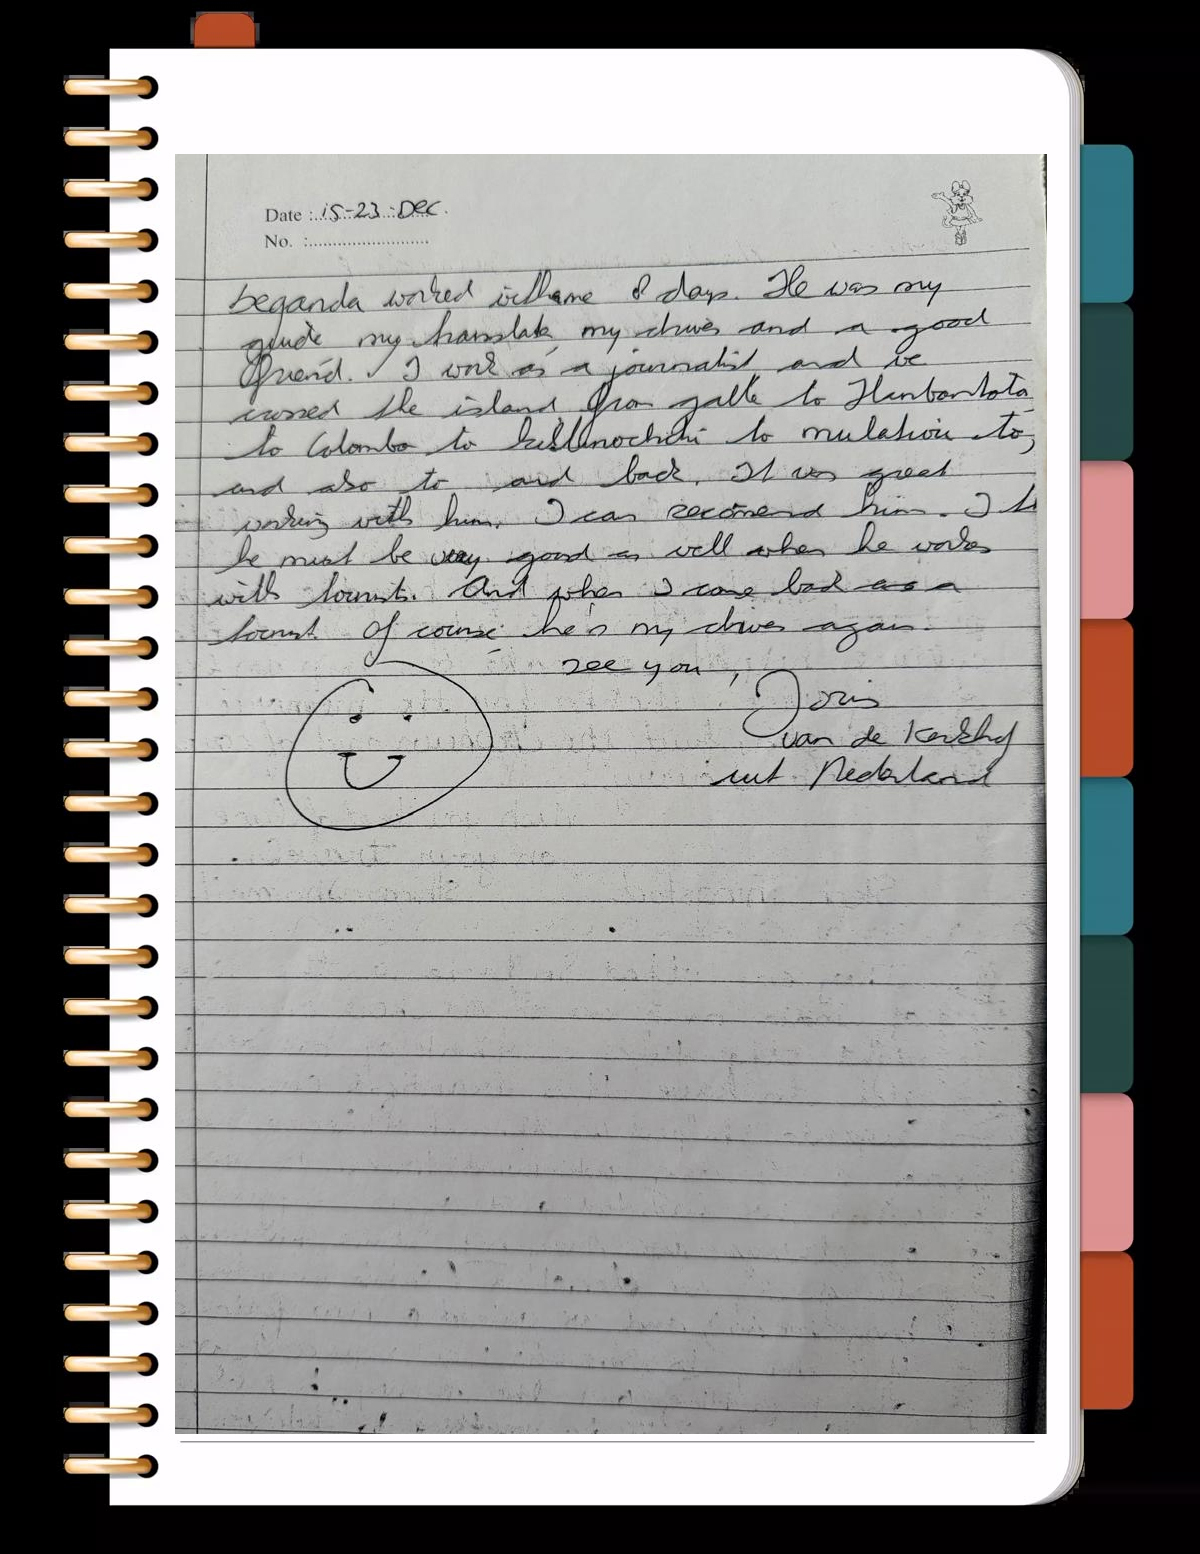 Date : 15-23 Dec
No. :
beganda worked with me 8 days. He was my
guide my translate my driver and a good
friend. I work as a journalist and we
crossed the island from galle to Hambantota
to Colombo to killinochchi to mulativu to,
and also to and back. It was great
working with him. I can recomend him. I
he must be very good as well when he works
with tourists. And when I come back as a
tourist of course he is my driver again.
see you,
Joris
van de Kerkhof
uit Nederland